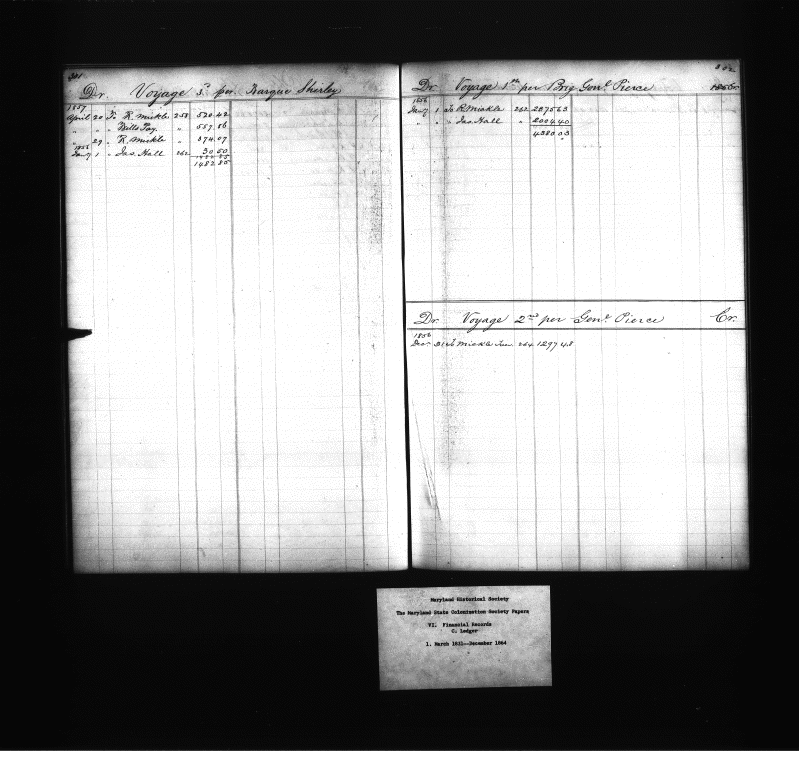 301
Dr. Voyage 3d. per. Barque Shirley
1857
April 20 To R. Mickle 258 520.42
" " " Bills Pay. " 557.86
" 29 " R. Mickle " 374.07
1858
Jany 1 " Jas. Hall 262 30 50
1482 85
1482.85
302
Dr. Voyage 1st per Brig Genl. Pierce
1856
Jany 1 To R. Mickle 262 2375 63
" " " Jas. Hall " 2004 40
4380 03
Dr. Voyage 2nd per Genl. Pierce Cr.
1858
Decr 31 To Mickle 264 1297 48
Maryland Historical Society
The Maryland State Colonization Society Papers
VI. Financial Records
C. Ledger
1. March 1831--December 1864